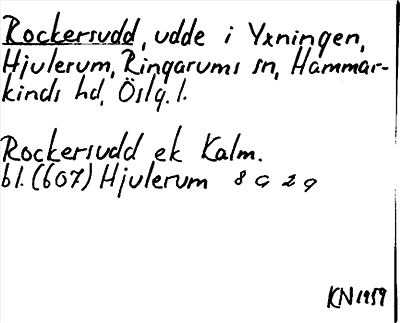 Rockersudd, udde i Yxningen,
Hjulerum, Ringarums sn, Hammar-
kinds hd, Östg. l.
Rockersudd ek Kalm.
bl. (607) Hjulerum 8 G 2 g
KN 1959